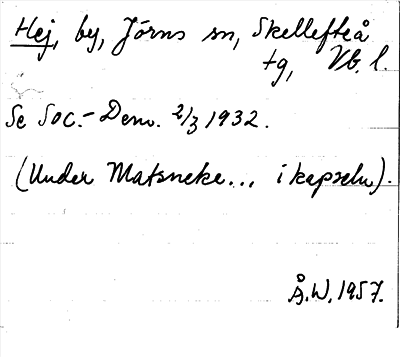 Hej, by, Jörns sn, Skellefteå
tg, Vb. l.
Se Soc.-Dem. 2/3 1932.
(Under Matsneke... i kapseln).
Å.W. 1957.